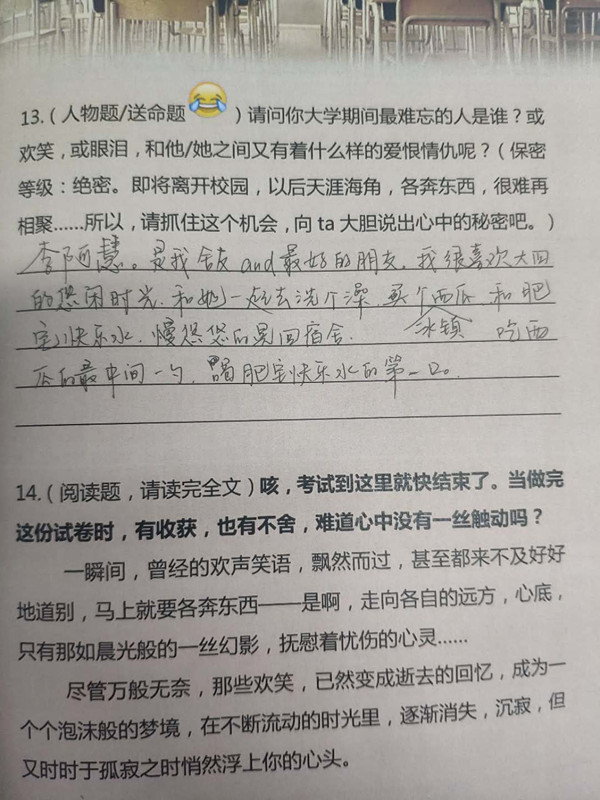 13.（人物题/送命题😂）请问你大学期间最难忘的人是谁？或
欢笑，或眼泪，和他/她之间又有着什么样的爱恨情仇呢？（保密
等级：绝密。即将离开校园，以后天涯海角，各奔东西，很难再
相聚......所以，请抓住这个机会，向 ta 大胆说出心中的秘密吧。）
李阿慧。是我舍友and最好的朋友，我很喜欢大四
的悠闲时光，和她一起去洗个澡，买个西瓜 和肥
宅快乐水，慢悠悠的晃回宿舍. 冰镇 吃西
瓜的最中间一勺，喝肥宅快乐水的第一口。
14.（阅读题，请读完全文）咳，考试到这里就快结束了。当做完
这份试卷时，有收获，也有不舍，难道心中没有一丝触动吗？
一瞬间，曾经的欢声笑语，飘然而过，甚至都来不及好好
地道别，马上就要各奔东西——是啊，走向各自的远方，心底，
只有那如晨光般的一丝幻影，抚慰着忧伤的心灵......
尽管万般无奈，那些欢笑，已然变成逝去的回忆，成为一
个个泡沫般的梦境，在不断流动的时光里，逐渐消失，沉寂，但
又时时于孤寂之时悄然浮上你的心头。